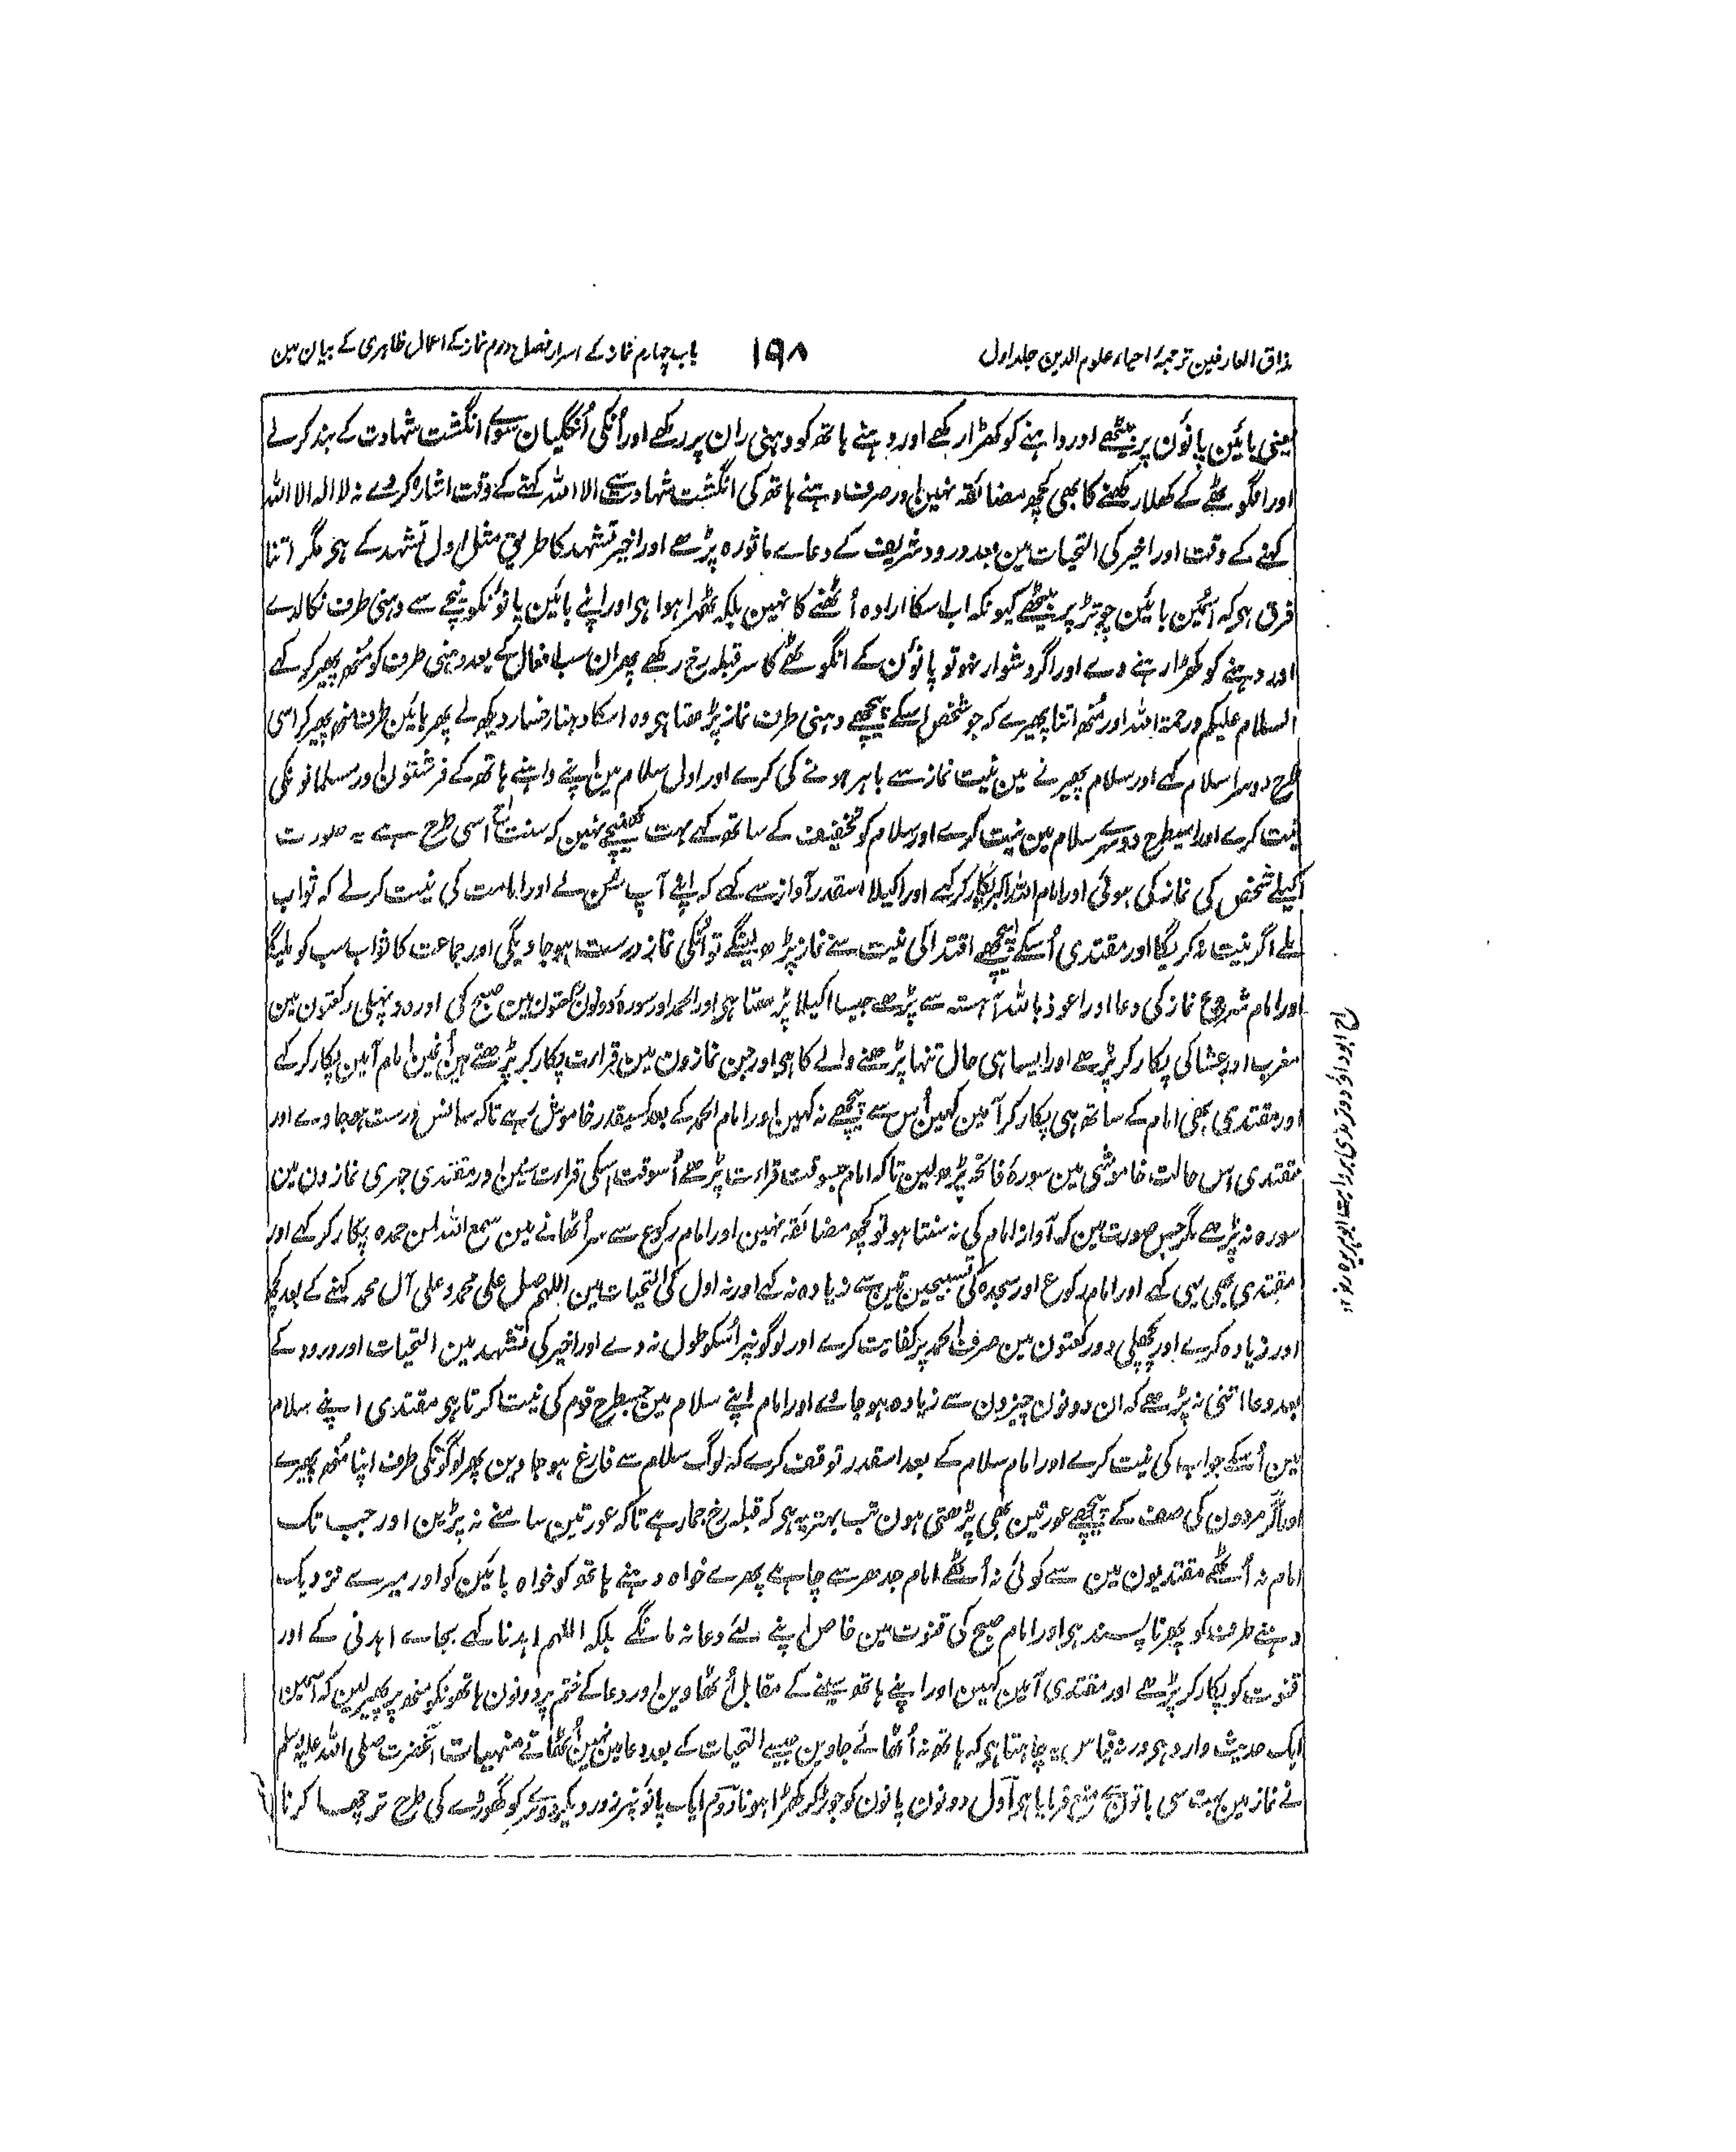 مذاق العارفین ترجمۂ احیاء علوم الدین جلد اول
۱۹۸
باب چہارم نماز کے اسرار فصل دوم نماز کے اعمال ظاہری کے بیان مین
یعنی بائین پانؤن پر بیٹھے اور داہنے کو کھڑا رکھے اور دہنے ہاتھ کو دہنی ران پر رکھے اور اُنکی اُنگلیان سوے انگشت شہادت کے بند کر لے
اور انگوٹھے کے کھلا رکھنے کا بھی کچھ مضائقہ نہین اور صرف دہنے ہاتھ کی انگشت شہادت سے الا اللہ کہنے کے وقت اشارہ کر دے نہ لا الہ الا اللہ
کہنے کے وقت اور اخیر کی التحیات مین بعد درود شریف کے دعاے ماثورہ پڑھے اور اخیر تشہد کا طریق مثل اول تشہد کے ہی مگر اتنا
فرق ہی کہ اسمین بائین چوتڑ پر بیٹھے کیونکہ اب اسکا ارادہ اُٹھنے کا نہین بلکہ ٹھہرا ہوا ہی اور اپنے بائین پانؤنکو نیچے سے دہنی طرف نکالدے
اور دہنے کو کھڑا رہنے دے اور اگر دشوار نہو تو پانؤن کے انگوٹھے کا سر قبلہ رخ رکھے پھر ان سب افعال کے بعد دہنی طرف کو مُنھ پھیر کر کہے
السلام علیکم ورحمۃ اللہ اور مُنھ اتنا پھیرے کہ جو شخص اسکے پیچھے دہنی طرف نماز پڑھتا ہی وہ اسکا دہنا رخسار دیکھ لے پھر بائین طرف منھ پھیر کر اسی
طرح دوسرا سلام کہے اور سلام پھیرنے مین نیت نماز سے باہر ہونے کی کرے اور اول سلام مین اپنے داہنے ہاتھ کے فرشتون اور مسلمانونکی
نیت کرے اور اسیطرح دوسرے سلام مین نیت کرے اور سلام کو تخفیف کے ساتھ کہے بہت کھینچے نہین کہ سنت اسی طرح ہے یہ صورت
اکیلے شخص کی نماز کی ہوئی اور امام اللہ اکبر پکار کر کہے اور اکیلا اسقدر آواز سے کہے کہ اپنے آپ سُن لے اور امامت کی نیت کر لے کہ ثواب
ملے اگر نیت نہ کریگا اور مقتدی اُسکے پیچھے اقتدا کی نیت سے نماز پڑھ لینگے تو اُنکی نماز درست ہو جاویگی اور جماعت کا ثواب سب کو ملیگا
اور امام شروع نماز کی دعا اور اعوذ باللہ آہستہ سے پڑھے جیسا اکیلا پڑھتا ہی اور الحمد اور سورہ دونون رکعتون مین صبح کی اور دو پہلی رکعتون مین
مغرب اور عشا کی پکار کر پڑھے اور ایسا ہی حال تنہا پڑھنے والے کا ہی اور جن نمازون مین قراءت پکار کر پڑھتے ہین اُنمین امام آمین پکار کر کہے
اور مقتدی بھی امام کے ساتھ ہی پکار کر آمین کہین اُس سے پیچھے نہ کہین اور امام الحمد کے بعد کسیقدر خاموش رہے تاکہ سانس درست ہو جاوے اور
مقتدی اس حالت خاموشی مین سورۂ فاتحہ پڑھ لین تاکہ امام جسوقت قراءت پڑھے اُسوقت اسکی قراءت سنین اور مقتدی جہری نمازون مین
سورہ نہ پڑھے مگر جس صورت مین کہ آواز امام کی نہ سنتا ہو تو کچھ مضائقہ نہین اور امام رکوع سے سر اُٹھانے مین سمع اللہ لمن حمدہ پکار کر کہے اور
مقتدی بھی یہی کہے اور امام رکوع اور سجدہ کی تسبیحین تین سے زیادہ نہ کہے اور نہ اول کی التحیات مین اللہم صل علی محمد وعلی آل محمد کہنے کے بعد کچھ
اور زیادہ کرے اور پچھلی دو رکعتون مین صرف الحمد پر کفایت کرے اور لوگونپر اُسکو طول نہ دے اور اخیر کی تشہد مین التحیات اور درود کے
بعد دعا اتنی نہ پڑھے کہ ان دونون چیزون سے زیادہ ہو جاے اور امام اپنے سلام مین جسطرح قوم کی نیت کرتا ہو مقتدی اپنے سلام
مین اُسکے جواب کی نیت کرے اور امام سلام کے بعد اسقدر توقف کرے کہ لوگ سلام سے فارغ ہو جاوین پھر لوگونکی طرف اپنا مُنھ پھیرے
اور اگر مردون کی صف کے پیچھے عورتین بھی پڑھتی ہون تب بہتر یہ ہی کہ قبلہ رخ جما رہے تاکہ عورتین سامنے نہ پڑین اور جب تک
امام نہ اُٹھے مقتدیون مین سے کوئی نہ اُٹھے امام جدھر سے چاہے پھرے خواہ دہنے ہاتھ کو خواہ بائین کو اور میرے نزدیک
دہنے طرف کو پھرنا پسند ہی اور امام صبح کی قنوت مین خاص اپنے لئے دعا نہ مانگے بلکہ اللہم اہدنا کہے بجاے اہدنی کے اور
قنوت کو پکار کر پڑھے اور مقتدی آمین کہین اور اپنے ہاتھ سینے کے مقابل اُٹھاوین اور دعا کے ختم پر دونون ہاتھونکو منھ پر پھیر لین کہ اسمین
ایک حدیث وارد ہی ورنہ قیاس یہ چاہتا ہی کہ ہاتھ نہ اُٹھائے جاوین جیسے التحیات کے بعد دعا مین نہین اُٹھاتے منہیات آنحضرت صلی اللہ علیہ وسلم
نے نماز مین بہت سی باتون سے منع فرمایا ہی اول دونون پانون کو جوڑ کر کھڑا ہونا دوم ایک پانوٴنپر زور دیکر دوسرے کو گھوڑے کی طرح ترچھا کرنا